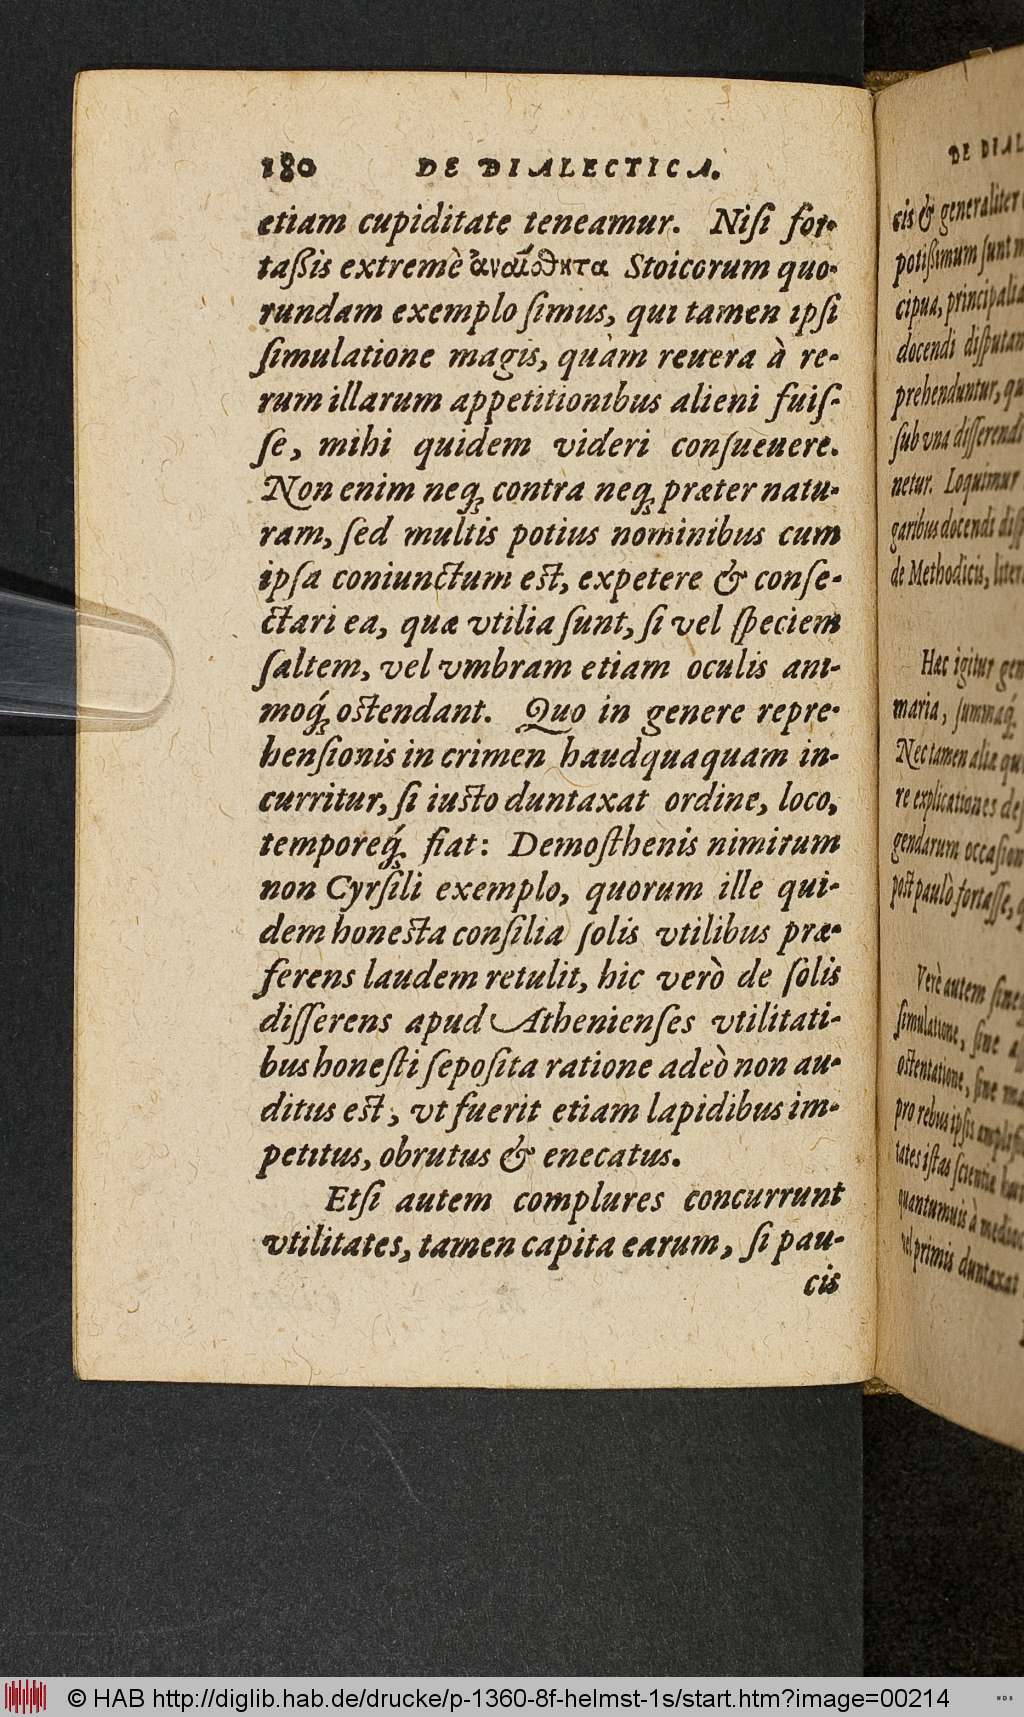 180 DE DIALECTICA.
etiam cupiditate teneamur. Niſi for-
taßis extremè ἀναίσθητα Stoicorum quo-
rundam exemplo ſimus, qui tamen ipſi
ſimulatione magis, quàm reuera à re-
rum illarum appetitionibus alieni fuiſ-
ſe, mihi quidem videri conſueuere.
Non enim neq; contra neq; præter natu-
ram, ſed multis potius nominibus cum
ipſa coniunctum eſt, expetere & conſe-
ctari ea, quæ vtilia ſunt, ſi vel ſpeciem
ſaltem, vel vmbram etiam oculis ani-
moq́; oſtendant. Quo in genere repre-
henſionis in crimen haudquaquam in-
curritur, ſi iuſto duntaxat ordine, loco,
temporeq́; fiat: Demoſthenis nimirum
non Cyrſili exemplo, quorum ille qui-
dem honeſta conſilia ſolis vtilibus præ-
ferens laudem retulit, hic verò de ſolis
diſſerens apud Athenienſes vtilitati-
bus honeſti ſepoſita ratione adeò non au-
ditus eſt, vt fuerit etiam lapidibus im-
petitus, obrutus & enecatus.
Etſi autem complures concurrunt
vtilitates, tamen capita earum, ſi pau-
cis
DE DIAL
cis & generaliter
potißimum ſunt
cipua, principalia
docendi diſputan
prehenduntur, qu
ſub vna diſſerendi
netur. Loquimur
garibus docendi diſſ
de Methodicis, liter
Hæc igitur gen
maria, ſummaq́;
Nec tamen alia qu
re explicationes deſ
gendarum occaſion
poſt paulò fortaſſe,
Verè autem ſine
ſimulatione, ſine
oſtentatione, ſine
pro rebus ipſis
tates iſtas ſcientiæ
quantumuis à
vel primis duntaxat
© HAB http://diglib.hab.de/drucke/p-1360-8f-helmst-1s/start.htm?image=00214